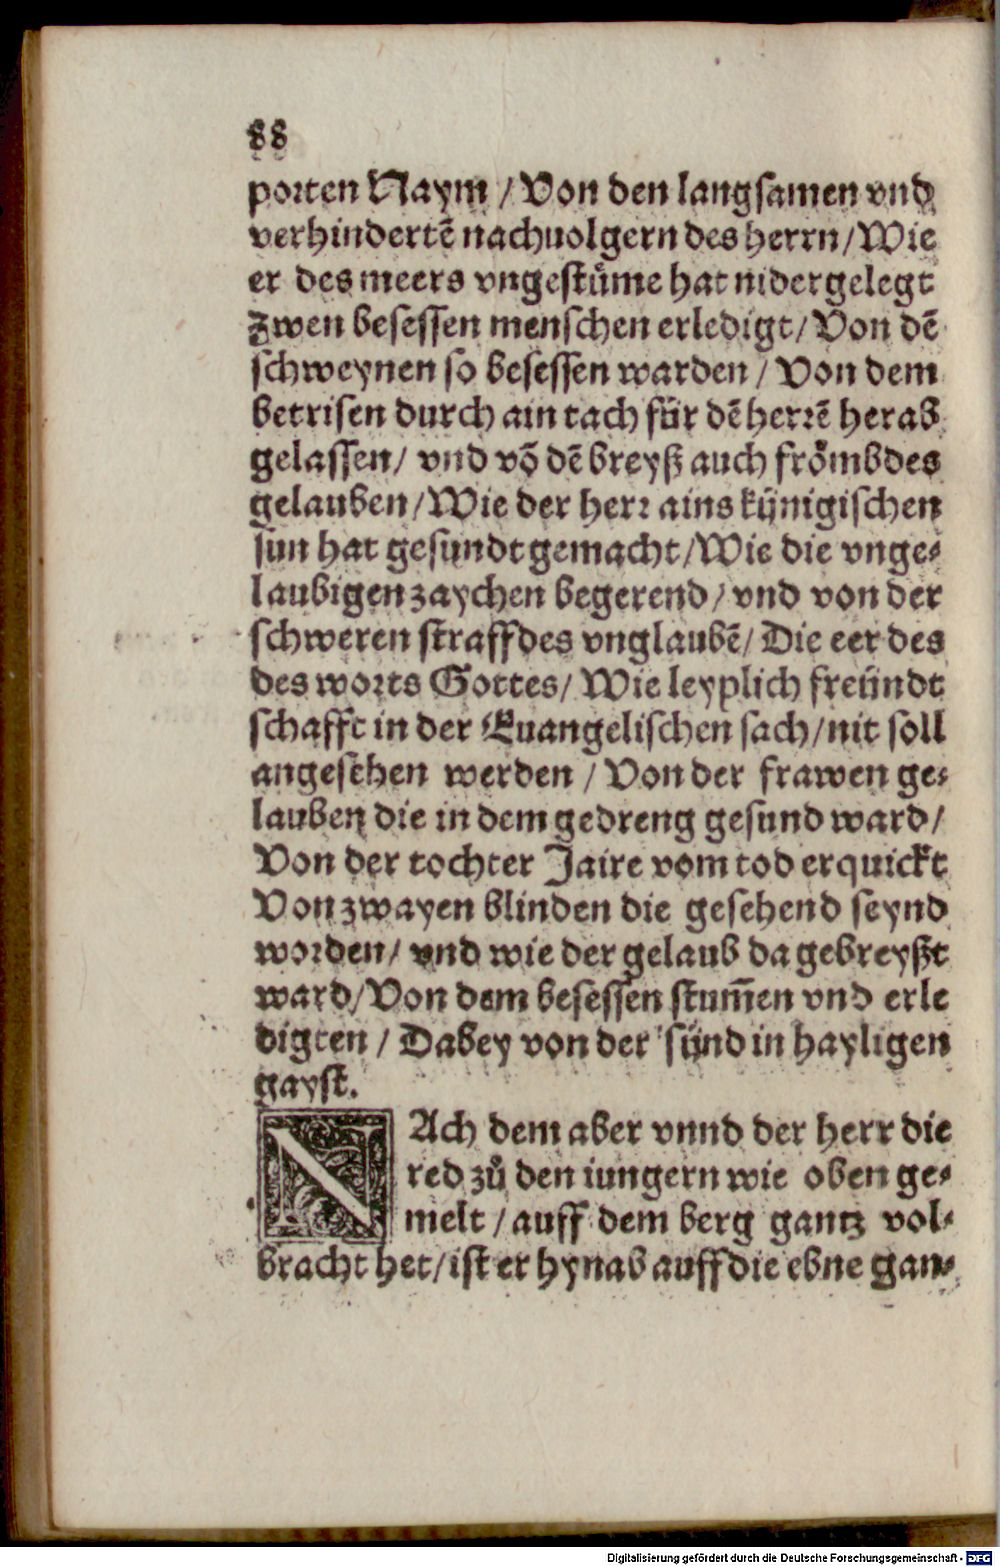 88
porten Naym / Von den langsamen vnd
verhindertẽ nachuolgern des herrn / Wie
er des meers vngestüme hat nidergelegt
Zwen besessen menschen erledigt / Von dẽ
schweynen so besessen warden / Von dem
betrisen durch ain tach für dẽ herrẽ herab
gelassen / vnd võ dẽ breyß auch frömbdes
gelauben / Wie der herr ains künigischen
sun hat gesundt gemacht / Wie die vnge-
laubigen zaychen begerend / vnd von der
schweren straff des vnglaubẽ / Die eer des
des worts Gottes / Wie leyplich freündt
schafft in der Euangelischen sach / nit soll
angesehen werden / Von der frawen ge-
lauben die in dem gedreng gesund ward /
Von der tochter Jaire vom tod erquickt
Von zwayen blinden die gesehend seynd
worden / vnd wie der gelaub da gebreyßt
ward / Von dem besessen stum̃en vnd erle
digten / Dabey von der sünd in hayligen
gayst.
NAch dem aber vnnd der herr die
red zů den iungern wie oben ge-
melt / auff dem berg gantz vol-
bracht het / ist er hynab auff die ebne gan-
Digitalisierung gefördert durch die Deutsche Forschungsgemeinschaft - DFG